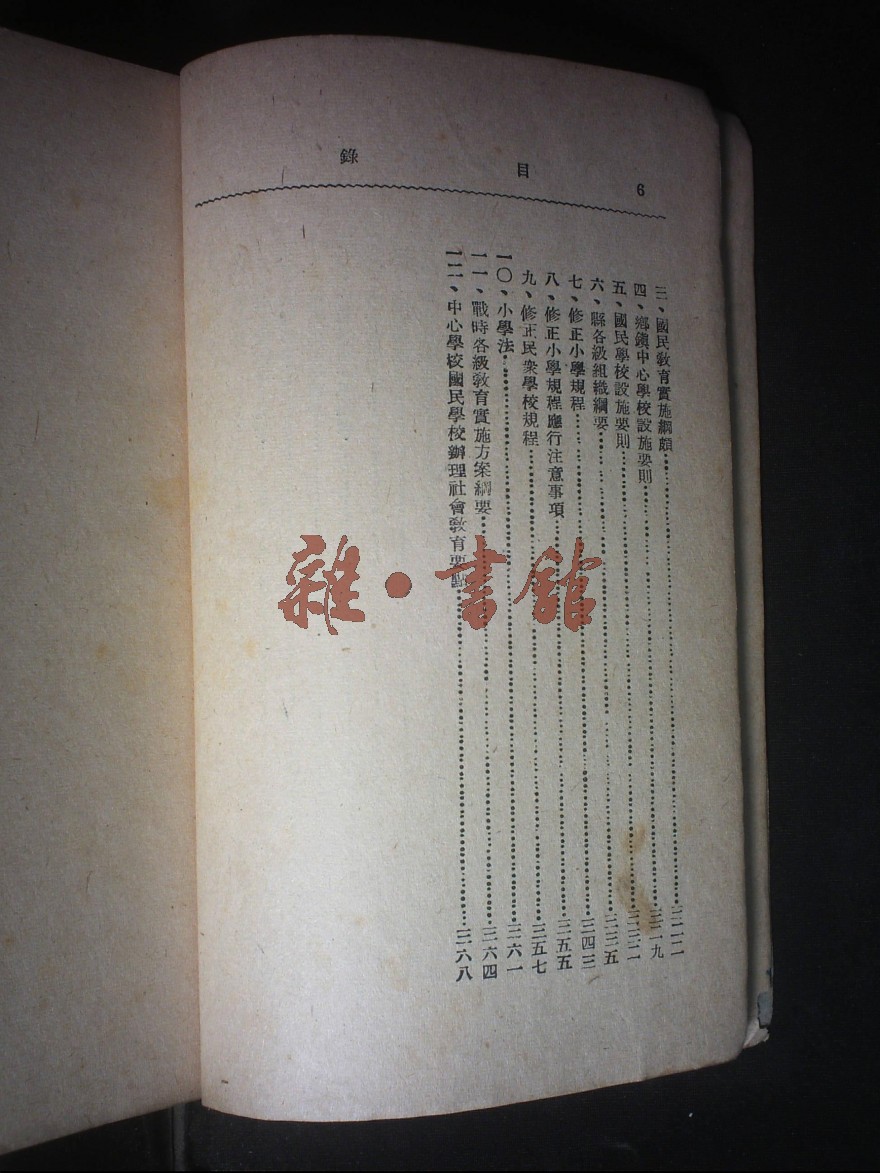 6 目 錄
三、國民敎育實施綱領……三一二
四、鄉鎭中心學校設施要則……三一九
五、國民學校設施要則……三二二
六、縣各級組織綱要……三三五
七、修正小學規程……三四三
八、修正小學規程應行注意事項……三五五
九、修正民衆學校規程……三五七
一〇、小學法……三六一
一一、戰時各級敎育實施方案綱要……三六四
一二、中心學校國民學校辦理社會敎育要點……三六八
雜·書館